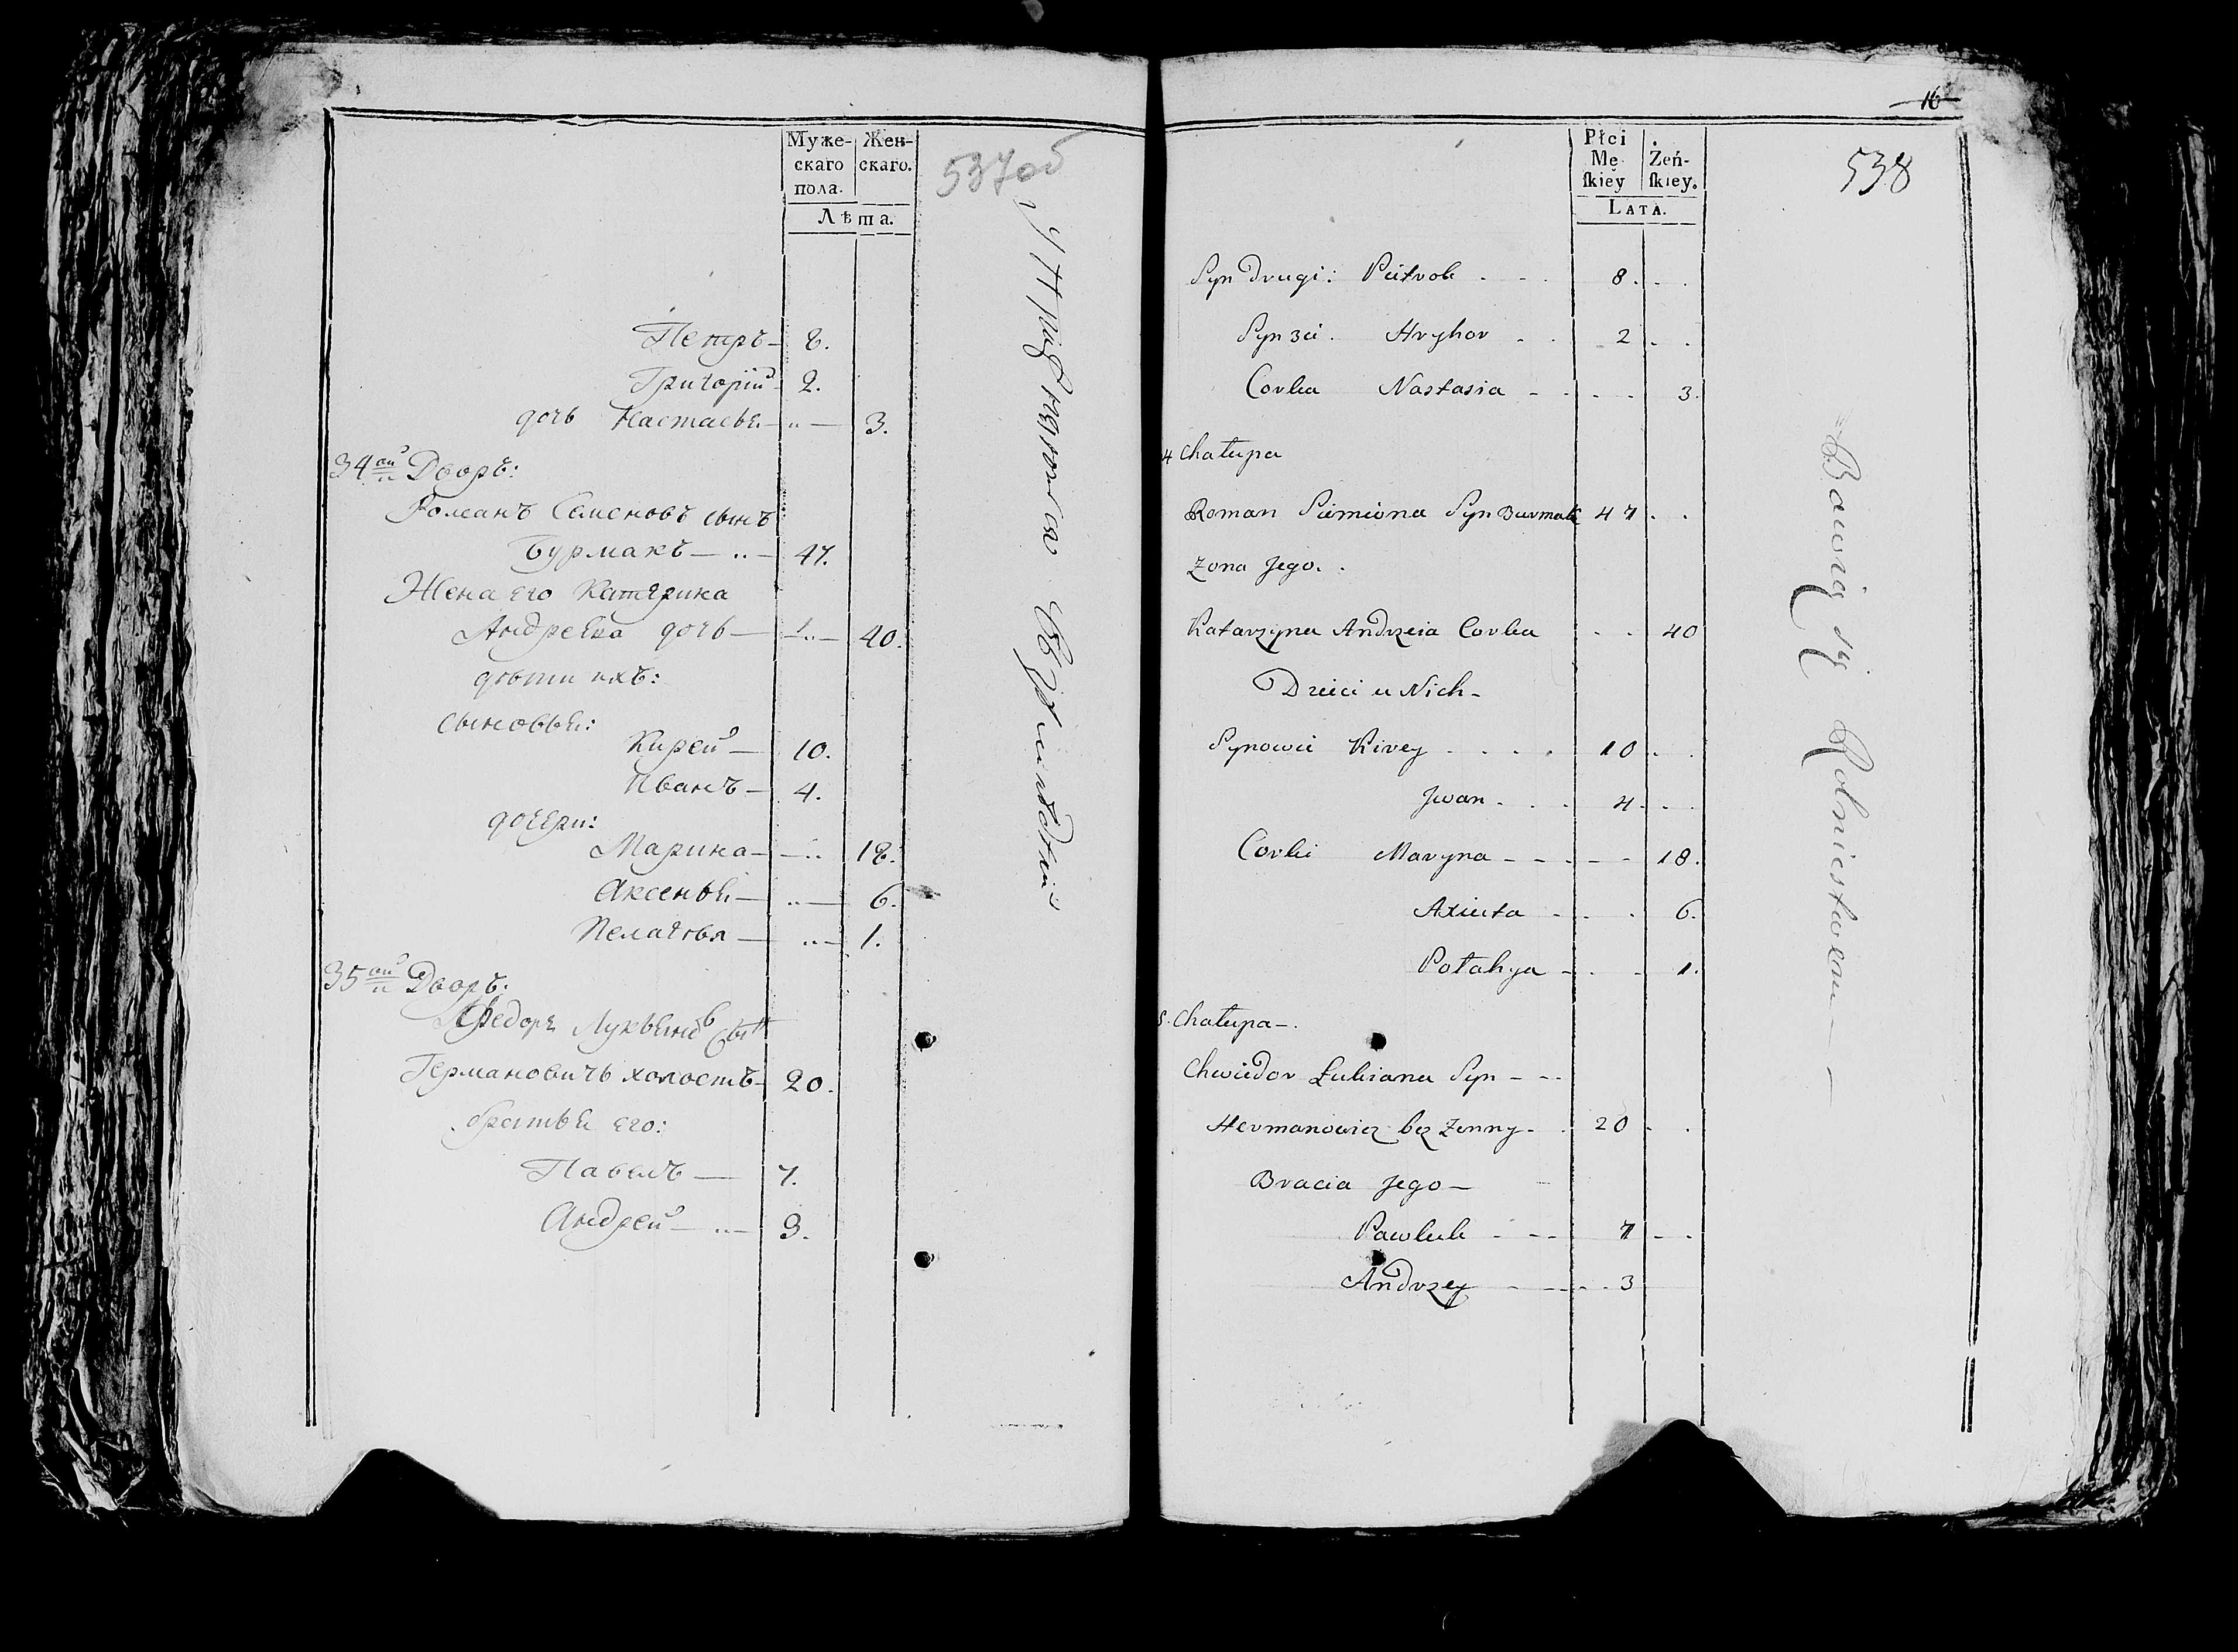 Муже-
скаго
пола.
Жен-
скаго.
Лѣта.
537об
Петръ — 8.
Григорій — 2.
дочь Настасья — „ — 3.
34ой Дворъ:
Романъ Семеновъ сынъ
Бурмакъ — „ — 47.
Жена его Катерина
Андреева дочь — „ — 40.
дѣти ихъ:
сыновья:
Кирей — 10.
Иванъ — 4.
дочери:
Марина — „ 18.
Аксенья — „ — 6.
Пелагѣя — „ — 1.
35ой Дворъ:
Федоръ Лукьяновъ сынъ
Германовичъ холостъ — 20.
братья его:
Павелъ — 7.
Андрей — „ — 3.
16
538
Płci
Mę
ſkiey
Żeń-
ſkiey.
LATA.
Syn Drugi: Piotrok - - - 8. - .
Syn 3ci. Hryhor . . 2 - .
Corka Nastasia - - - - 3.
4 Chałupa
Roman Siemiona Syn Burmak 47 . .
Zona Jego. .
Katarzyna Andrzeia Corka . . 40
Dzieci u Nich -
Synowie Kirey - . . . 10 - .
Jwan - . . 4 - - .
Corki Maryna - - - - - 18.
Axiuta - . . 6.
Połahya - . - 1.
5. Chałupa - .
Chwiedor Łukiana Syn - --
Hermanowicz bez Zenny - . 20 - .
Bracia Jego -
Pawluk - -- 7 - .
Andrzey - - - - 3
Bawią się Rolnictwem —